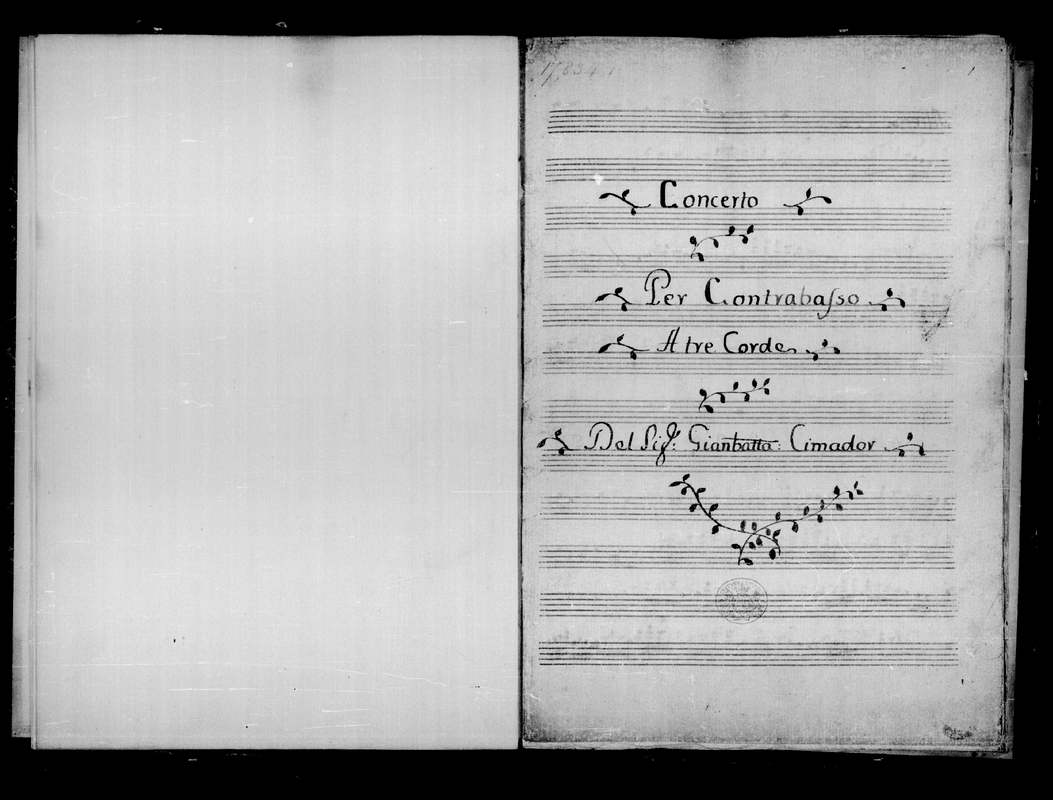 1
Concerto
Per Contrabaſso
A tre Corde
Del Sigr: Gianbatta: Cimador